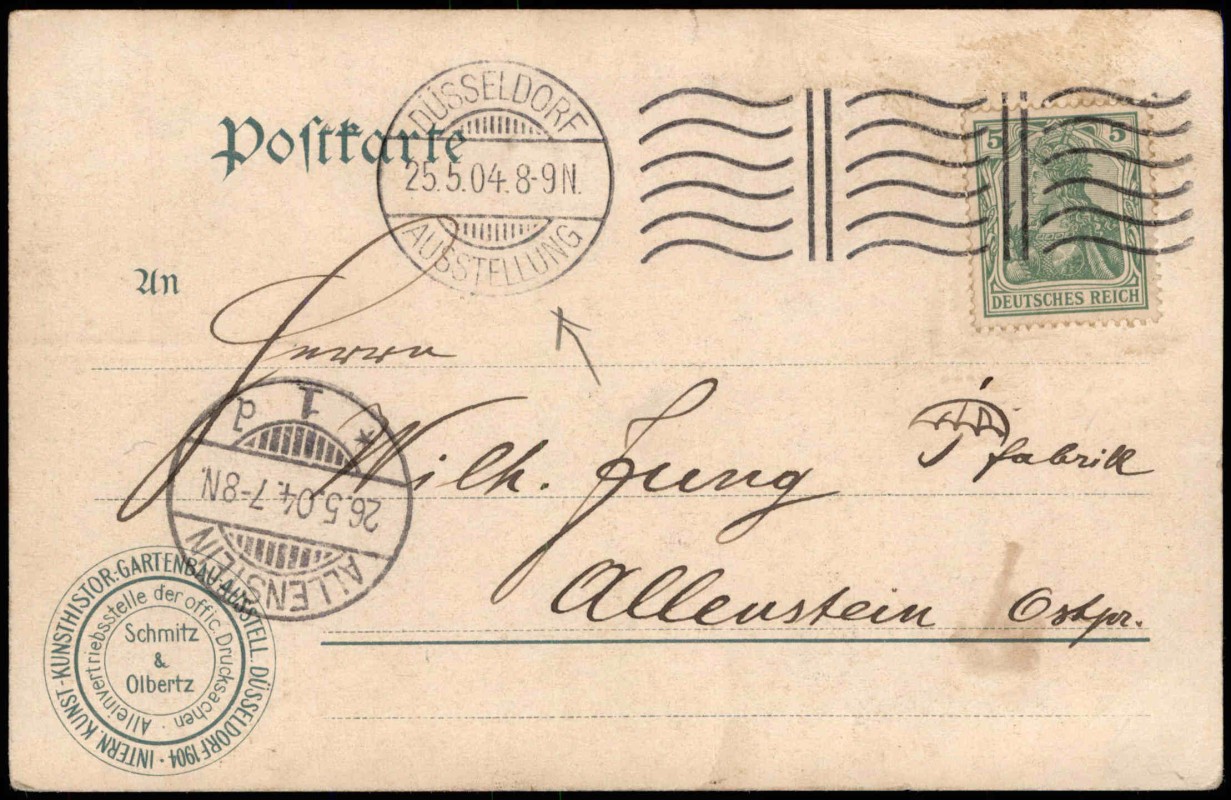 Postkarte
DÜSSELDORF
25.5.04. 8-9 N.
AUSSTELLUNG
5 5
DEUTSCHES REICH
An
Herrn
Wilh. Jung
fabrik
Allenstein Ostpr.
ALLENSTEIN
26.5.04. 7-8N.
* 1 d
INTERN. KUNST-KUNSTHISTOR.-GARTENBAU-AUSSTELL. DÜSSELDORF 1904 ·
Alleinvertriebsstelle der offic. Drucksachen ·
Schmitz
&
Olbertz